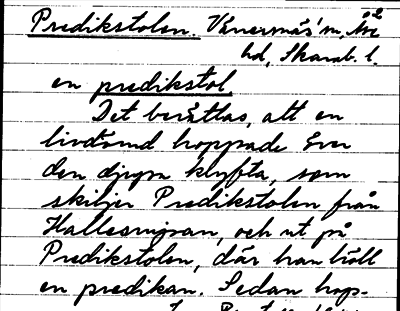 Predikstolen. Vänersnäs' sn, Åse
hd, Skarab. l.
en predikstol
Det berättas, att en
livdömd hoppade över
den djupa klyfta, som
skiljer Predikstolen från
Hallesnipan, och ut på
Predikstolen, där han höll
en predikan. Sedan hop-